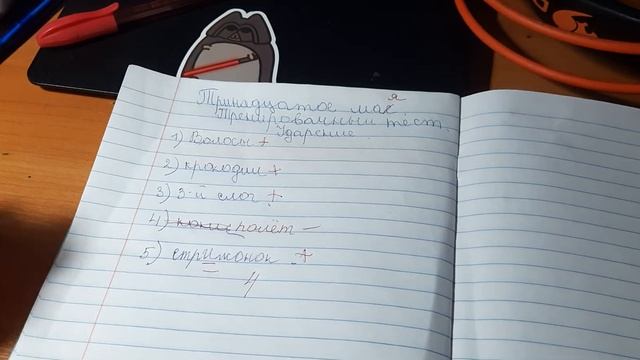 Тринадцатое мая
Тренировачный тест.
Ударение
1) Волосы +
2) крокодил +
3) 3-й слог +
4) полёт –
5) стрижонок +
4